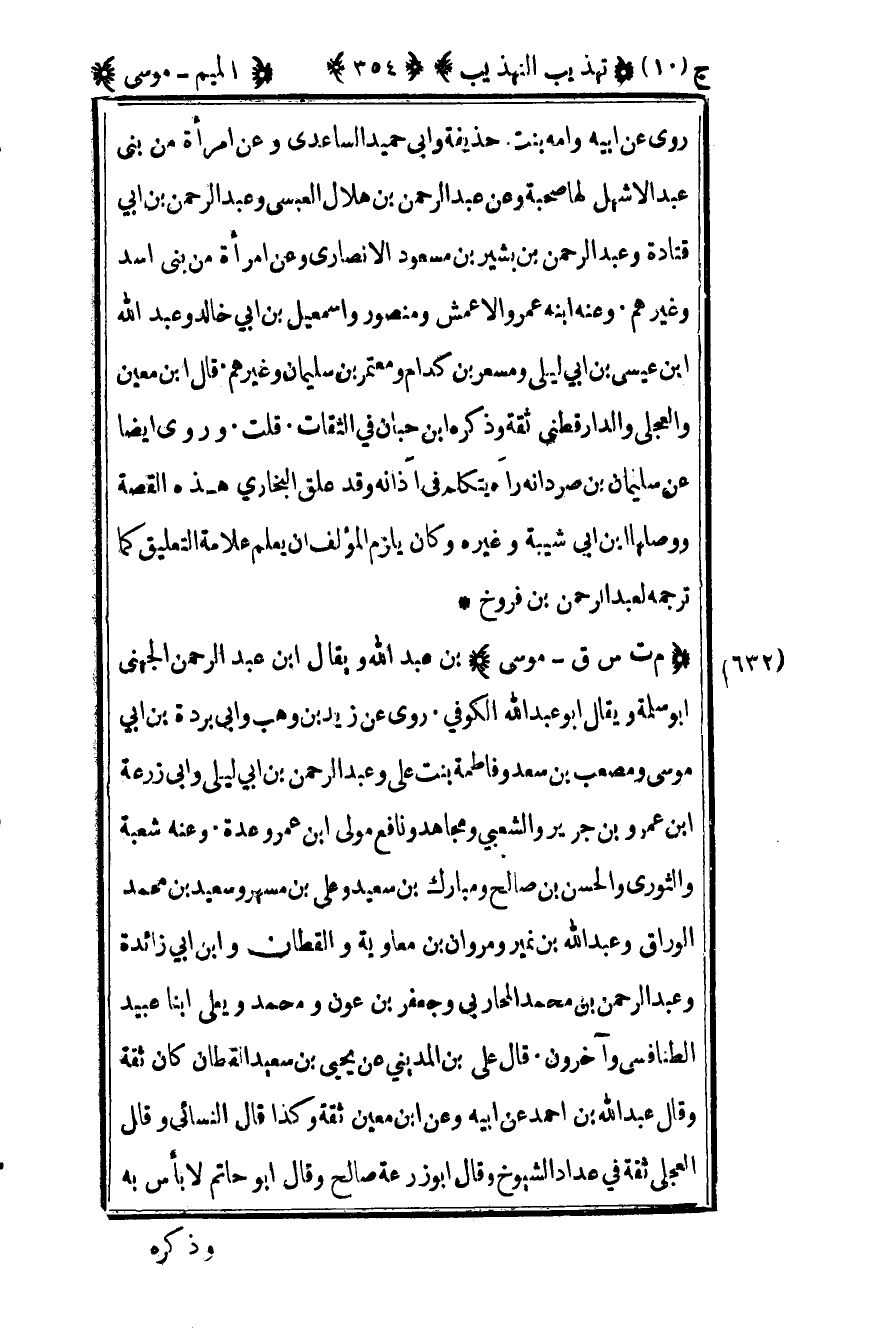 ج (١٠) ﴿ تهذيب التهذيب ﴾ ﴿ ٣٥٤ ﴾ ﴿ الميم - موسى ﴾
روى عن ابيه وامه بنت حذيفة وابي حميد الساعدى وعن امرأة من بنى
عبد الاشهل لها صحبة وعن عبد الرحمن بن هلال العبسى وعبد الرحمن بن ابي
قتادة وعبد الرحمن بن بشير بن مسعود الانصارى وعن امرأة من بنى اسد
وغيرهم · وعنه ابنه عمر والاعمش ومنصور واسمعيل بن ابي خالد وعبد الله
ابن عيسى بن ابي ليلى ومسعر بن كدام ومعتمر بن سليمان وغيرهم · قال ابن معين
والعجلى والدارقطني ثقة وذكره ابن حبان في الثقات · قلت · وروى ايضا
عن سليمان بن صرد انه رآه يتكلم فى اذانه وقد علق البخاري هذه القصة
ووصلها ابن ابي شيبة وغيره وكان يلزم المؤلف ان يعلم علامة التعليق كما
ترجمه لعبد الرحمن بن فروخ *
(٦٣٢) ﴿ م ت س ق - موسى ﴾ بن عبد الله ويقال ابن عبد الرحمن الجهنى
ابو سلمة ويقال ابو عبد الله الكوفي · روى عن زيد بن وهب وابي بردة بن ابي
موسى ومصعب بن سعد وفاطمة بنت على وعبد الرحمن بن ابي ليلى وابي زرعة
ابن عمرو بن جرير والشعبي ومجاهد ونافع مولى ابن عمر وعدة · وعنه شعبة
والثورى والحسن بن صالح ومبارك بن سعيد وعلى بن مسهر وسعيد بن محمد
الوراق وعبد الله بن نمير ومروان بن معاوية والقطان وابن ابي زائدة
وعبد الرحمن بن محمد المحاربي وجعفر بن عون ومحمد ويعلى ابنا عبيد
الطنافسى وآخرون · قال على بن المديني عن يحيى بن سعيد القطان كان ثقة
وقال عبد الله بن احمد عن ابيه وعن ابن معين ثقة وكذا قال النسائى وقال
العجلى ثقة في عداد الشيوخ وقال ابو زرعة صالح وقال ابو حاتم لا بأس به
وذكره